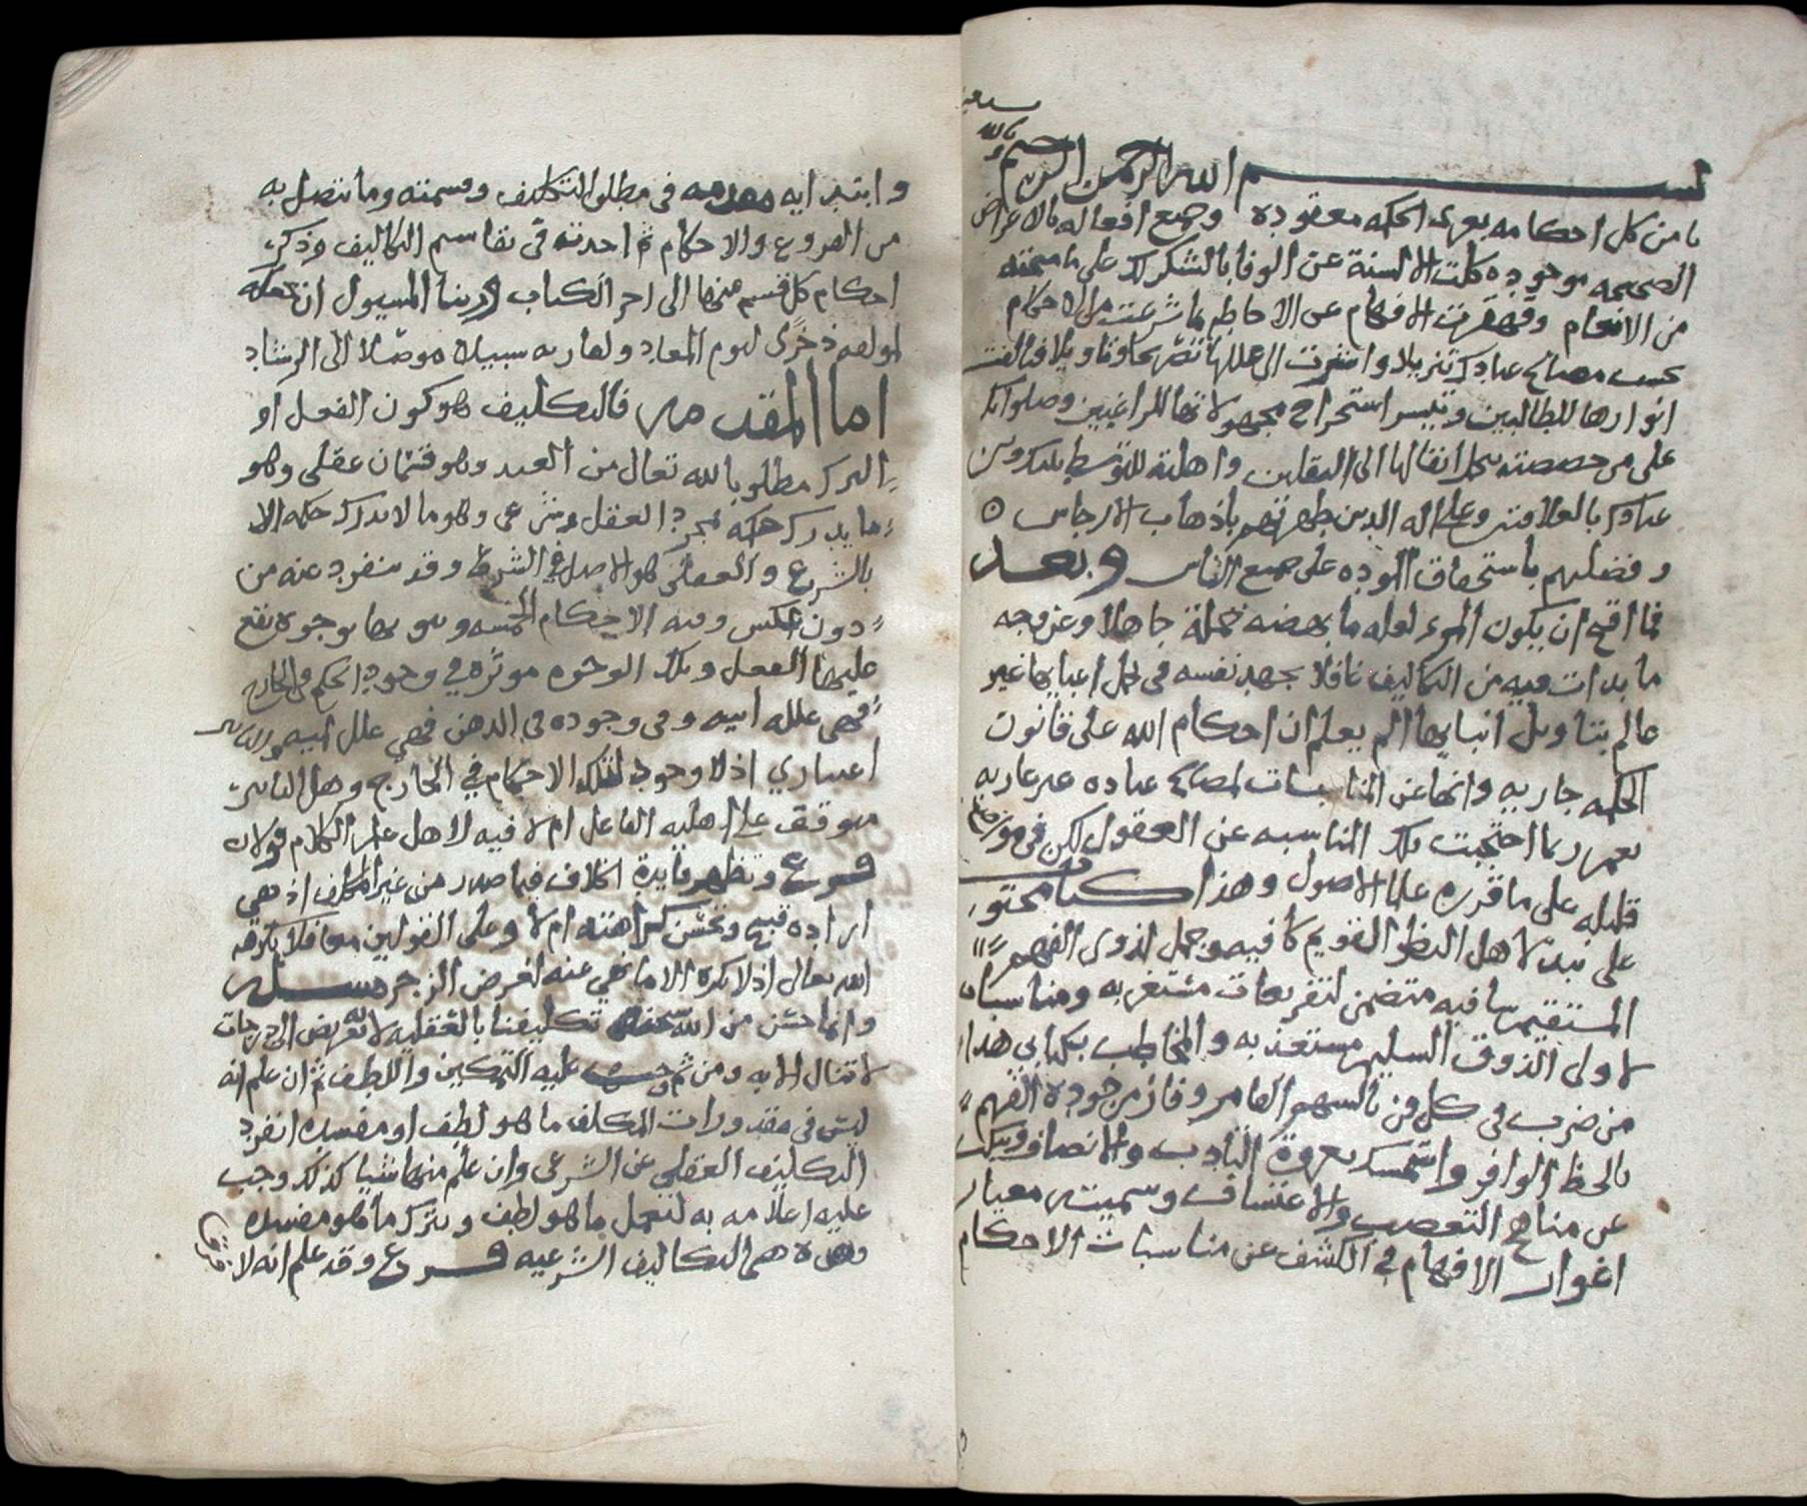 نستعين
بالله
بسم الله الرحمن الرحيم
يا من كل احكامه بعرى الحكمه معقوده وجميع افعاله بالاعراض
الصحيحه موجوده كلت الالسنة عن الوفا بالشكر لك على ما منحته
من الانعام وقهقرت الافهام عن الاحاطه بما شرعت من الاحكام
بحسب مصالح عبادك تنزيلا واستقرت الى عللها تصريحا وتاويلا فتالفت
انوارها للطالبين وتيسر استخراج مجهولاتها للراغبين وصلواتك
على من خصصته بحمل اثقالها الى الثقلين واهلته للتوسط بينك وبين
عبادك بالعلامتين وعلى اله الذين طهرتهم باذهاب الارجاس ⊙
وفضلتهم باستحقاق الموده على جميع الناس وبعد
فما اقبح ان يكون المرء لعله ما بهضه تحمله جاهلا وعن وجه
ما بدات فيه من التكاليف غافلا يجهد نفسه في حمل اعبايها غير
عالم بتاويل انبايها الم يعلم ان احكام الله على قانون
الحكمه جاريه وانها عن المناسبات لمصالح عباده غير عاريه
نعم ربما احتجبت تلك المناسبه عن العقول لكن في مواضع
قليله على ما قرره علما الاصول وهذا كتاب محتو
على نبذ لاهل النظر القويم كافيه وجمل لذوي الفهم
المستقيم شافيه متضمن لتفريعات مستغربه ومناسبات
لاولى الذوق السليم مستعذبه والمخاطب بكتابي هذا
من ضرب في كل فن بالسهم القامر وفاز من جودة الفهم
بالحظ الوافر واستمسك بعروة التادب والانصاف وتنكب
عن مناهج التعصب والاعتساف وسميته معيار
اغوار الافهام في الكشف عن مناسبات الاحكام
وابتدايه مقدمه في مطلق التكليف وقسمته وما يتصل به
من الفروع والاحكام ثم اخذته في تقاسم التكاليف وذكر
احكام كل قسم منها الى اخر الكتاب وربنا المسيول ان يجعله
لمولفه ذخرى ليوم المعاد ولقاريه سبيلا موصلا الى الرشاد
اما المقدمه فالتكليف هو كون الفعل او
الترك مطلوبا لله تعالى من العبد وهو قسمان عقلي وهو
ما يدرك حكمه بمجرد العقل وشرعي وهو ما لا يدرك حكمه الا
بالشرع والعقلي هو الاصل في الشرط وقد ينفرد عنه من
دون عكس وفيه الاحكام الخمسه وهو بها بوجوه يقع
عليها الفعل وتلك الوجوه موثره في وجود الحكم في الخارج
فهي علله اميه وفي وجوده في الذهن فهي علل لميه والتاثير
اعتباري اذ لا وجود لتلك الاحكام في الخارج وهل التاثير
موقف على اهليه الفاعل ام لا فيه لاهل علم الكلام قولان
فرع وتظهر فايدة الخلاف فيما صدر من غير المكلف اذ هي
اراده قبيح وتحسن كراهته ام لا وعلى القولين معا فلا يكرهه
الله تعالى اذ لا يكره الا ما نهي عنه لغرض الزجر مسله
وانما حسن من الله سبحانه تكليفنا بالعقليه لانه تعريض الى درجات
لا تنال الا به ومن ثم وجب عليه التمكين واللطف ثم ان علم انه
ليس في مقدورات المكلف ما هو لطف او مفسده انفرد
التكليف العقلي عن الشرعي وان علم منها شيا كذلك وجب
عليه اعلامه به لنعمل ما هو لطف ونترك ما هو مفسده
وهذه هي التكاليف الشرعيه فرع وقد علم انه لا